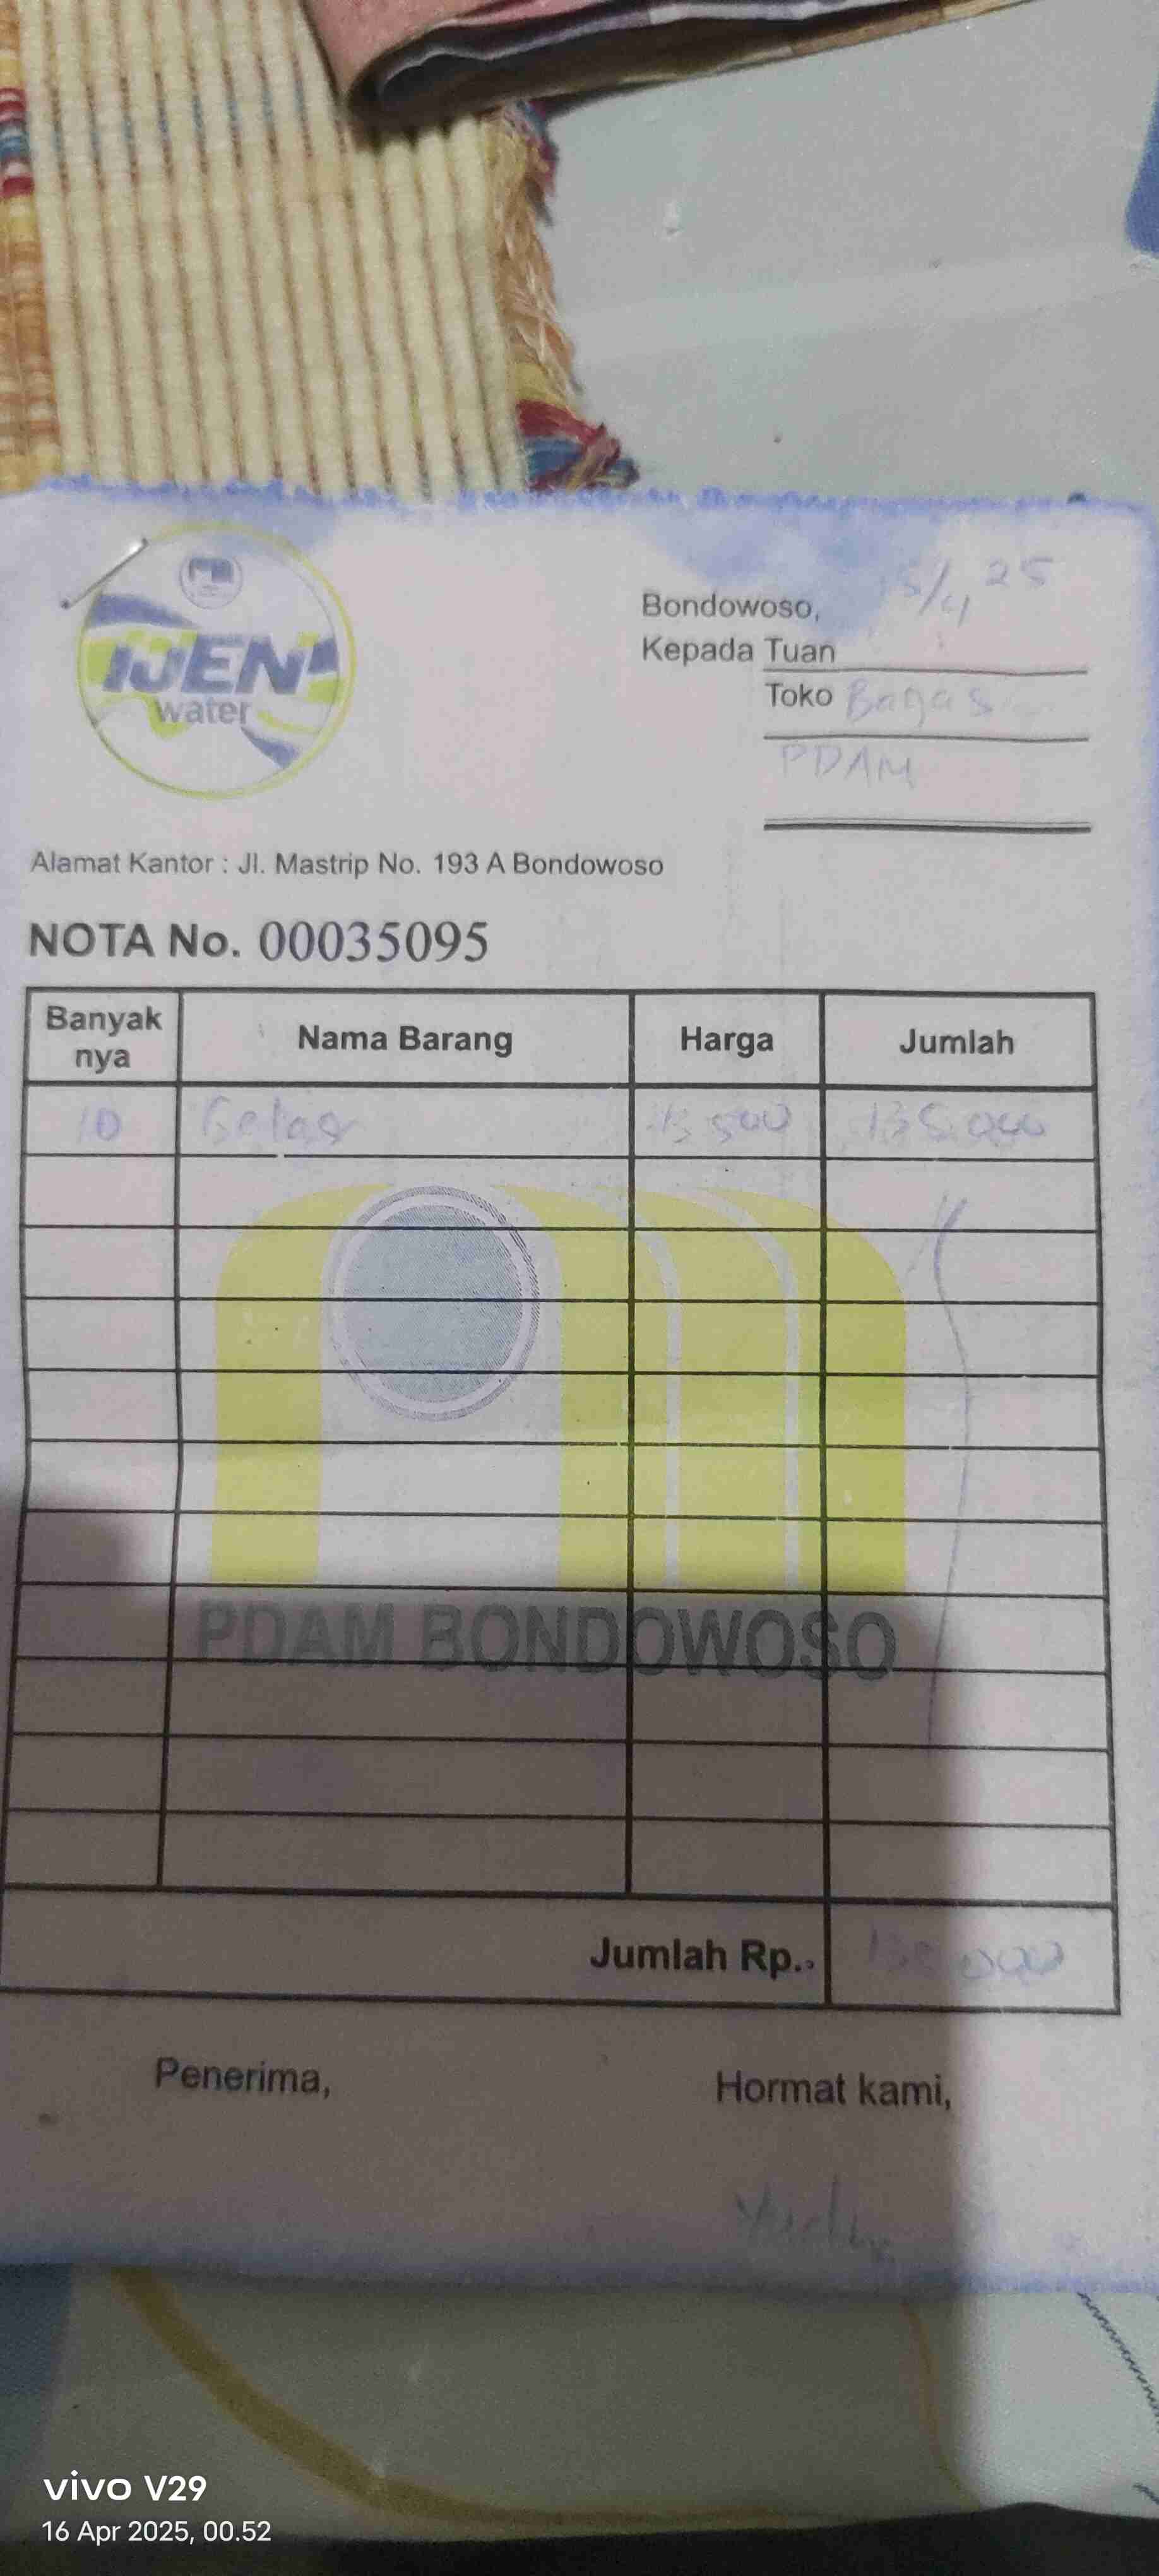 IJEN
water
Bondowoso, 15/4 25
Kepada Tuan
Toko Bagas
PDAM
Alamat Kantor : Jl. Mastrip No. 193 A Bondowoso
NOTA No. 00035095
Banyak nya Nama Barang Harga Jumlah
10 Gelas 13 500 135.000
PDAM BONDOWOSO
Jumlah Rp.. 135.000
Penerima, Hormat kami,
vivo V29
16 Apr 2025, 00.52